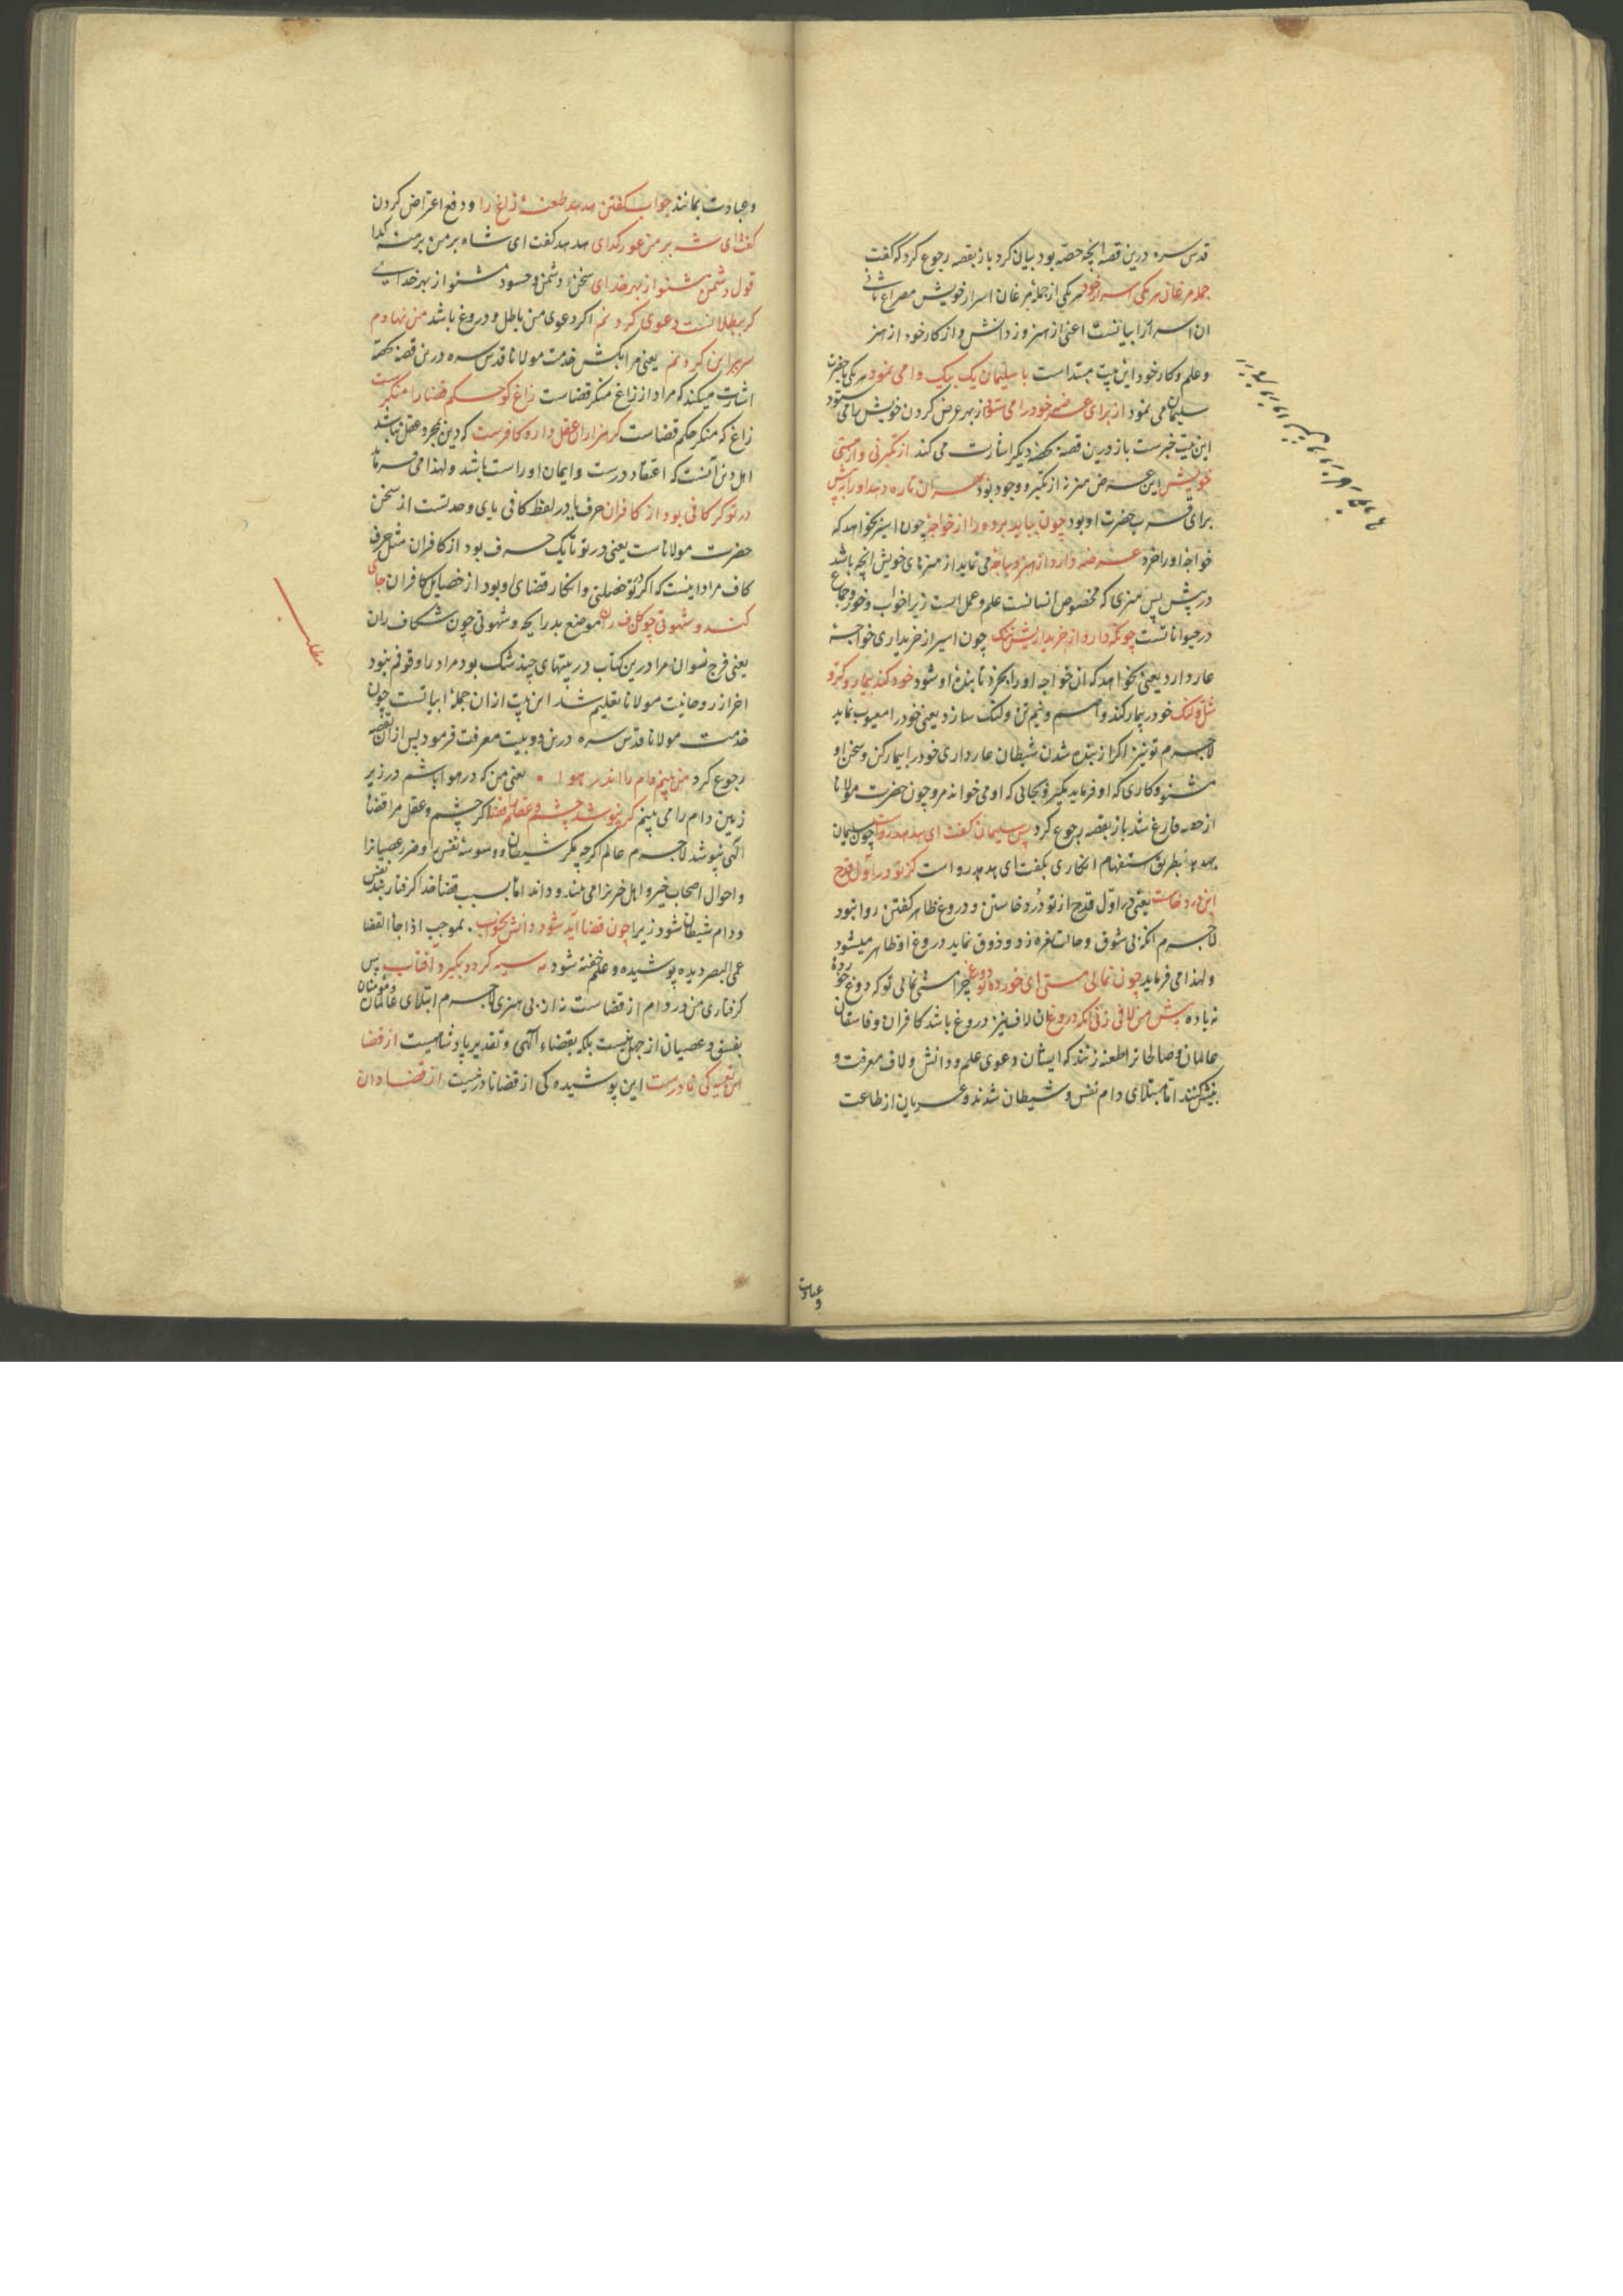 قدس سره درین قصه انچه حصه بود بیان کرد باز بقصه رجوع کرد که گفت
جمله مرغان هر یکی اسرار خود هر یکی از جملهٔ مرغان اسرار خویش مصراع ثانی
ان اسرار را بیانست اعنی از هنر وز دانش و از کار خود از هنر
و علم و کار خود این بیت مبتداست با سلیمان یک بیک وا می نمود هر یکی بحضرت
سلیمان می نمود از برای عرضه خود را می ستود از بهر عرض کردن خویش را می ستود
این بیت خبرست باز درین قصه بحصهٔ دیگر اشارت می کند از تکبر نی و از هستی
خویش این عرض هنر نه از تکبر و وجود بود بهر آن تا ره دهد او را به پیش
برای قرب حضرت او بود چون بباید برده را از خواجهٔ چون اسیر بخواهد که
خواجه او را خرد عرضه دارد از هنر دیباجهٔ می نماید از هنرهای خویش انچه باشد
در پیش پس هنری که مخصوص انسانست علم و عمل است زیرا خواب و خور و جماع
در حیوانا تست چونکه دارد از خریداریش ننگ چون اسیر از خریداری خواجه
عار دارد یعنی نخواهد که ان خواجه او را بخرد تا بندهٔ او شود خود کند بیمار و کر و
شل و لنگ خود را بیمار کند و اصم و نیم تن و لنگ سازد یعنی خود را معیوب نماید
لاجرم تو نیز اگر از بنده شدن شیطان عار داری خود را بیمار کن و سخن او
مشنو و کاری که او فرماید مگیر و بجائی که او می خواند مرو چون حضرت مولانا
از حصه فارغ شد باز بقصه رجوع کرد پس سلیمان گفت ای هدهد رواست چون سلیمان
بهدهد بطریق استفهام انکاری بگفت ای هدهد رواست کز تو در اول قدح
این درد خاست یعنی در اول قدح از تو درد خاستن و دروغ ظاهر گفتن روا نبود
لاجرم انکه بی شوق و حالت نعره زد و ذوق نماید دروغ او ظاهر میشود
و لهذا می فرماید چون نمائی مستی ای خورده تو دوغ چرا مستی نمائی تو که دوغ خوردهٔ
نه باده پیش من لافی زنی انکه دروغ ان لاف نیز دروغ باشد کافران و فاسقان
عالمان و صالحانرا طعنه زنند که ایشان دعوی علم و دانش و لاف معرفت و
بینش کنند اما مبتلای دام نفس و شیطان شدند و عریان از طاعت
و عبادت
و عبادت بمانند جواب گفتن هدهد طعنهٔ زاغ را و دفع اعتراض کردن
گفت ای شه بر من عور گدای هدهد گفت ای شاه بر من برهنه گدا
قول دشمن مشنو از بهر خدای سخن دشمن و حسود مشنو از بهر خدای
گر ببطلانست دعوی کردنم اگر دعوی من باطل و دروغ باشد من نهادم
سر ببر این گردنم یعنی مرا بکش خدمت مولانا قدس سره درین قصه بحصه
اشارت میکند که مراد از زاغ منکر قضاست زاغ کو حکم قضا را منکرست
زاغ که منکر حکم قضاست گر هزاران عقل دارد کافرست که دین بمجرد عقل نباشد
اهل دین آنست که اعتقاد درست و ایمان او راست باشد و لهذا می فرماید
در تو گر کافی بود از کافران حرف یا در لفظ کافی یای وحدتست از سخن
حضرت مولاناست یعنی در تو تا یک حرف بود از کافران مثل حرف
کاف مراد اینست که اگر در تو خصلتی و انکار قضای او بود از خصایل کافران جای
گند و شهوتی چون کاف ران موضع بد رایحه و شهوتی چون شکاف ران
یعنی فرج نسوان مرا درین کتاب در بیتهای چند شک بود مراد را وقوفم نبود
اخر از روحانیت مولانا تعلیم شد این بیت ازان جملهٔ ابیاتست چون
خدمت مولانا قدس سره درین دو بیت معرفت فرمود پس ازان بقصه
رجوع کرد من ببینم دام را اندر هوا یعنی من که در هوا باشم در زیر
زمین دام را می بینم گر نپوشد چشم و عقلم را قضا اگر چشم و عقل مرا قضاء
الهی نپوشد لاجرم عالم اگرچه مکر شیطان و وسوسهٔ نفس را و ضرر عصیانرا
و احوال اصحاب خیر و اهل خیر را می بیند و داند اما بسبب قضا خدا گرفتار بند نفس
و دام شیطان شود زیرا چون قضا آید شود دانش بخواب بموجب اذا جاء القضا
عمی البصر دیده پوشیده و علم خفته شود مه سیه گردد بگیرد آفتاب پس
گرفتاری من در دام از قضاست نه از بی هنری لاجرم ابتلای عالمان و مؤمنان
بفسق و عصیان از جهل نیست بلکه بقضاء الهی و تقدیر پادشاهیست از قضا
این تعبیه کی نادرست این پوشیده کی از قضا نادر نیست از قضا دان
مطلب